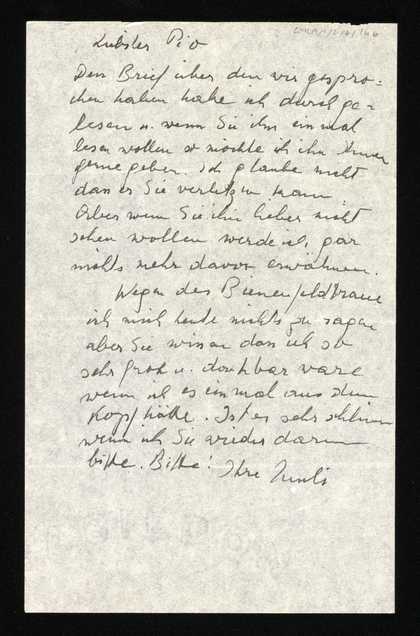 Liebster Pio
Den Brief über den wir gespro-
chen haben habe ich durchge-
lesen u. wenn Sie ihn einmal
lesen wollen so möchte ich ihn Ihnen
gerne geben. Ich glaube nicht
dass er Sie verletzen kann.
Aber wenn Sie ihn lieber nicht
sehen wollen werde ich gar
nichts mehr davon erwähnen.
Wegen des
ich mich heute nichts zu sagen
aber Sie wissen dass ich so
sehr froh u. dankbar wäre
wenn ich es einmal aus dem
Kopf hätte. Ist es sehr schlimm
wenn ich Sie wieder darum
bitte. Bitte! Ihre